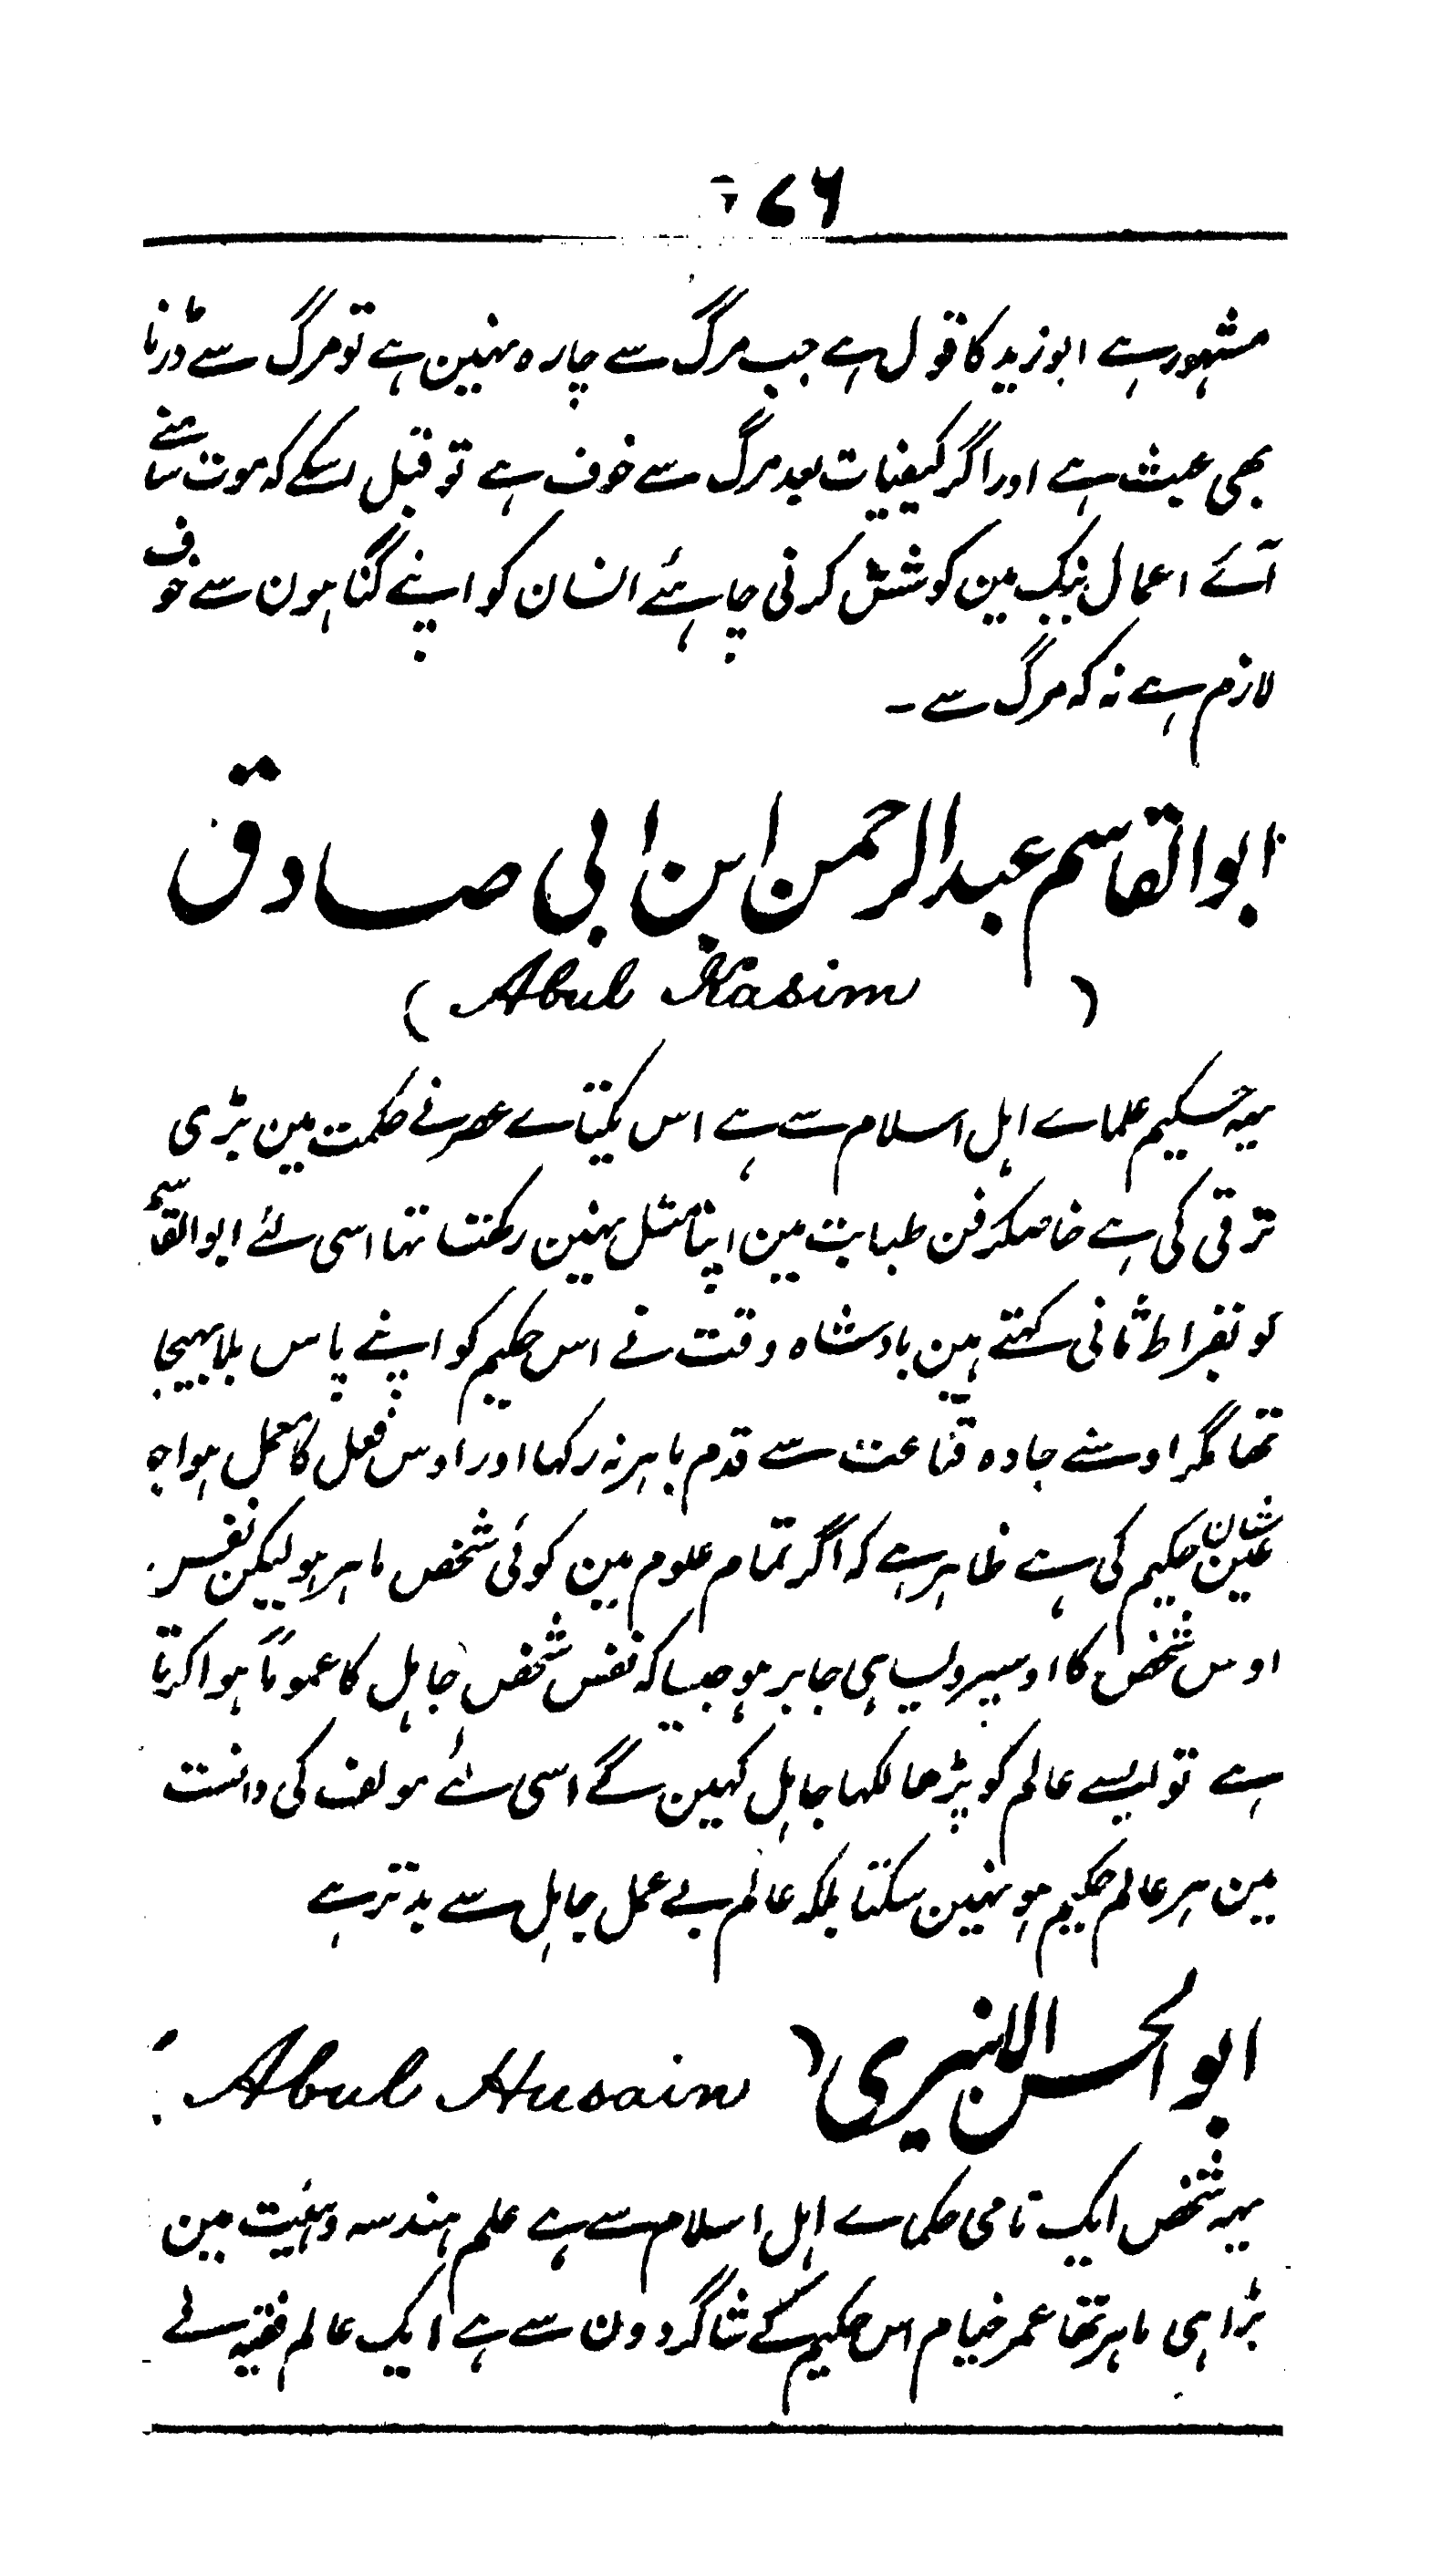 ۲۷۶
مشہور ہے ابو زید کا قول ہے جب مرگ سے چارہ نہین ہے تو مرگ سے ڈرنا
بھی عبث ہے اور اگر کیفیات بعد مرگ سے خوف ہے تو قبل اسکے کہ موت سامنے
آئے اعمال نیک مین کوشش کرنی چاہئے انسان کو اپنے گناہون سے خوف
لازم ہے نہ کہ مرگ سے ۔
ابوالقاسم عبدالرحمن ابن ابی صادق
( Abul Kasim )
یہہ حکیم علماے اہل اسلام سے ہے اس یکتاے عصر نے حکمت مین بڑی
ترقی کی ہے خاصکر فن طبابت مین اپنا مثل نہین رکھتا تہا اسی لئے ابوالقاسم
کو بقراط ثانی کہتے ہین بادشاہ وقت نے اس حکیم کو اپنے پاس بلا بہیجا
تھا مگر اوسنے جادہ قناعت سے قدم باہر نہ رکہا اور اوس فعل کا عمل ہوا جو
عین شان حکیم کی ہے ظاہر ہے کہ اگر تمام علوم مین کوئی شخص ماہر ہو لیکن نفس
اوس شخص کا اوسپر ویسا ہی جابر ہو جیسا کہ نفس شخص جاہل کا عموماً ہوا کرتا
ہے تو ایسے عالم کو پڑھا لکہا جاہل کہین گے اسی لئے مولف کی دانست
مین ہر عالم حکیم ہو نہین سکتا بلکہ عالم بے عمل جاہل سے بدتر ہے
ابو الحسن الانبیری ( Abul Husain
یہہ شخص ایک نامی حکماے اہل اسلام سے ہے علم ہندسہ و ہیئت مین
بڑا ہی ماہر تھا عمر خیام اس حکیم کے شاگردون سے ہے ایک عالم فقیہ نے